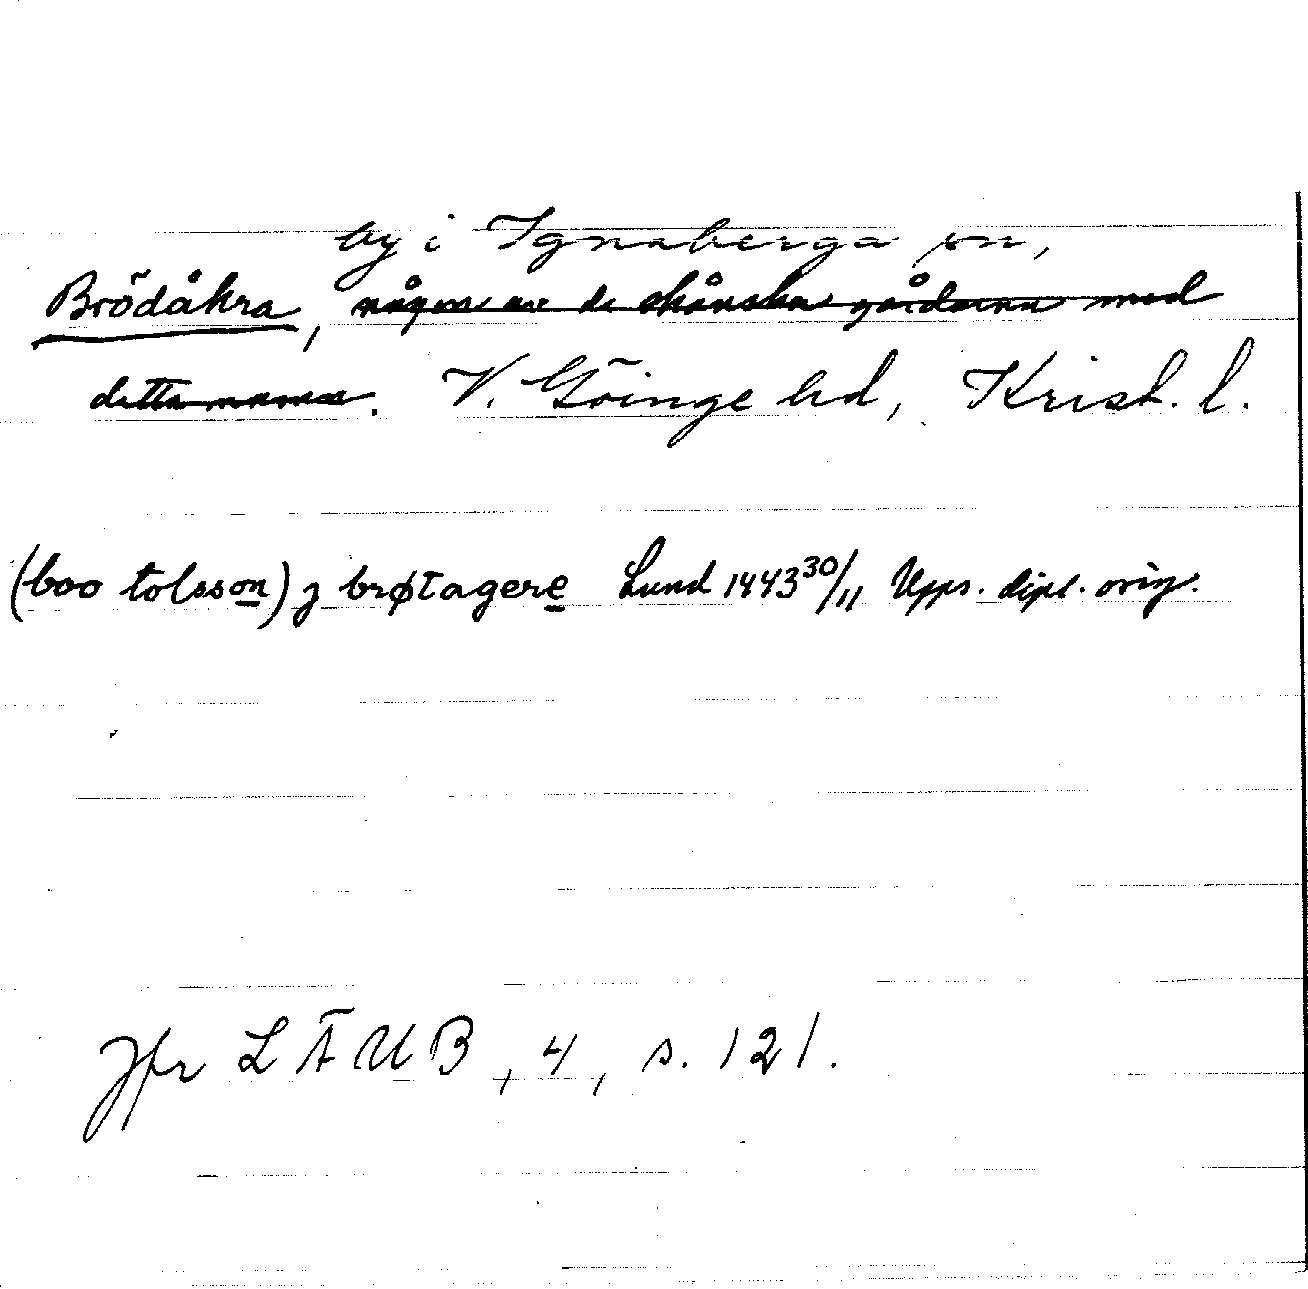 by i Ignaberga sn,
Brödåkra, någon av de skånska gårdarna med
detta namn. V. Göinge hd, Krist. l.
(boo tolsson) j brøtagere Lund 1443 30/11 Upps. dipl. orig.
Jfr LÄUB, 4, s. 121.